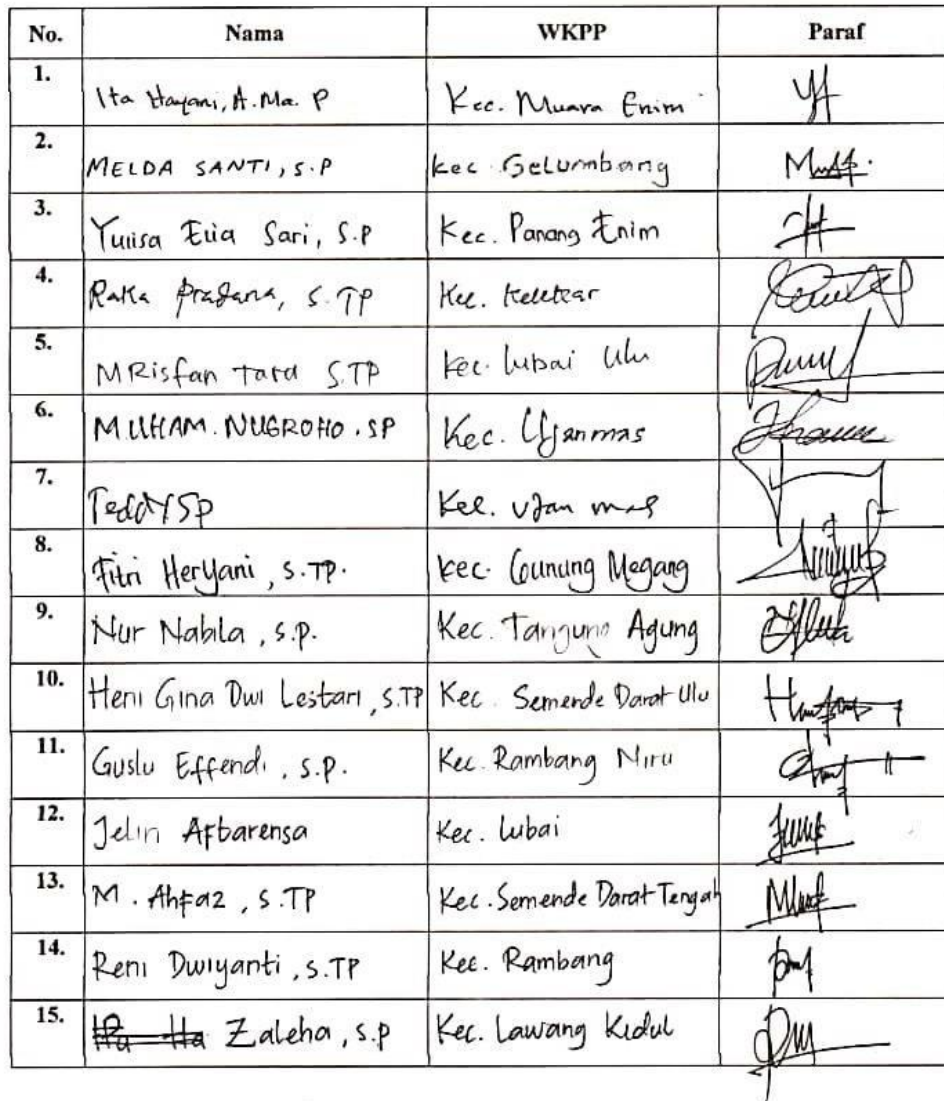 No. Nama WKPP Paraf
1. Ita Hayani, A.Ma. P Kec. Muara Enim
2. MELDA SANTI, S.P Kec. Gelumbang
3. Yulisa Elia Sari, S.P Kec. Panang Enim
4. Raka Pradana, S.TP Kec. Kelekar
5. M Risfan Tara S.TP Kec. Lubai Ulu
6. M.UHAM. NUGROHO. SP Kec. Ujanmas
7. Teddy SP Kec. Ujan mas
8. Fitri Heryani, S.TP. Kec. Gunung Megang
9. Nur Nabila, S.P. Kec. Tangung Agung
10. Heni Gina Dwi Lestari, S.TP Kec. Semende Darat Ulu
11. Guslu Effendi, S.P. Kec. Rambang Niru
12. Jelin Afbarensa Kec. Lubai
13. M. Ahfaz, S.TP Kec. Semende Darat Tengah
14. Reni Dwiyanti, S.TP Kec. Rambang
15. Zaleha, S.P Kec. Lawang Kidul